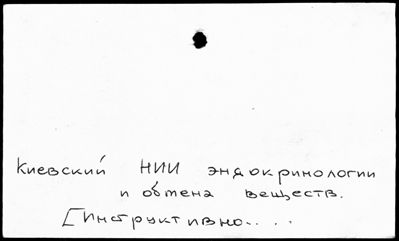 Киевский НИИ эндокринологии
и обмена веществ.
[Инструктивно....